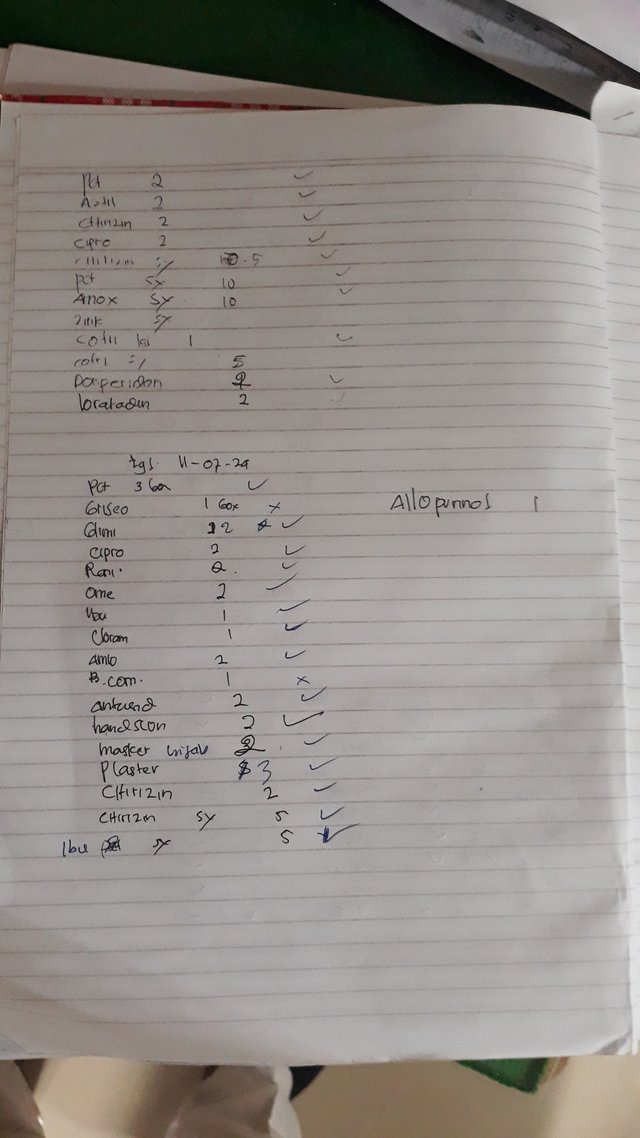 Pct 2 ✓
2 ✓
Cthirizin 2 ✓
Cipro 2 ✓
sy 5 ✓
Pct sx 10 ✓
Amox sy 10 ✓
zink sy
1 ✓
sy 5
Domperidon 2 ✓
loratadin 2 ✓
tgl. 11-07-24
Pct 3 box ✓
Griseo 1 box x
Glimi 12 ✓
Cipro 2 ✓
Rani. 2. ✓
Ome 2 ✓
Ibu 1 ✓
Cloram 1 ✓
Amlo 2 ✓
B.com. 1 x
2 ✓
handscon 2 ✓
masker 2. ✓
Plaster 3 ✓
CHirizin 2 ✓
CHirizin sy 5 ✓
Ibu sx 5 ✓
Allopurinol 1